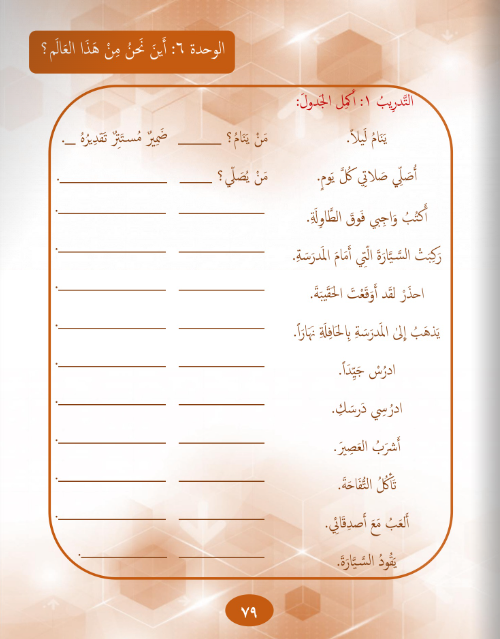 الوحدة ٦: أَينَ نَحنُ مِنْ هَذَا العَالَم؟
التَّدرِيبُ ١: أَكمِل الجَدولَ:
يَنَامُ لَيلاً. مَنْ يَنَامُ؟ ______ ضَمِيرٌ مُستَتِرٌ تَقدِيرُهُ __.
أُصَلِّي صَلاتِي كُلَّ يَومٍ. مَنْ يُصَلِّي؟ ____ ______________.
أَكتُبُ وَاجِبي فَوقَ الطَّاوِلَةِ. ____________ ______________.
رَكِبتُ السَّيَّارَةَ الَّتِي أَمَامَ المَدرَسَةِ. ____________ ______________.
احذَرْ لَقَد أَوقَعْتَ الحَقِيبَةَ. ____________ ______________.
يَذهَبُ إِلىٰ المَدرَسَةِ بِالحَافِلَةِ نَهَارَاً. ____________ ______________.
ادرُسْ جَيِّدَاً. ____________ ______________.
ادرُسِي دَرسَكِ. ____________ ______________.
أَشرَبُ العَصِيرَ. ____________ ______________.
تَأكُلُ التُّفَاحَةَ. ____________ ______________.
أَلعَبُ مَعَ أَصدِقَائِي. ____________ ______________.
يَقُودُ السَّيَّارَةَ. ____________ ______________.
٧٩